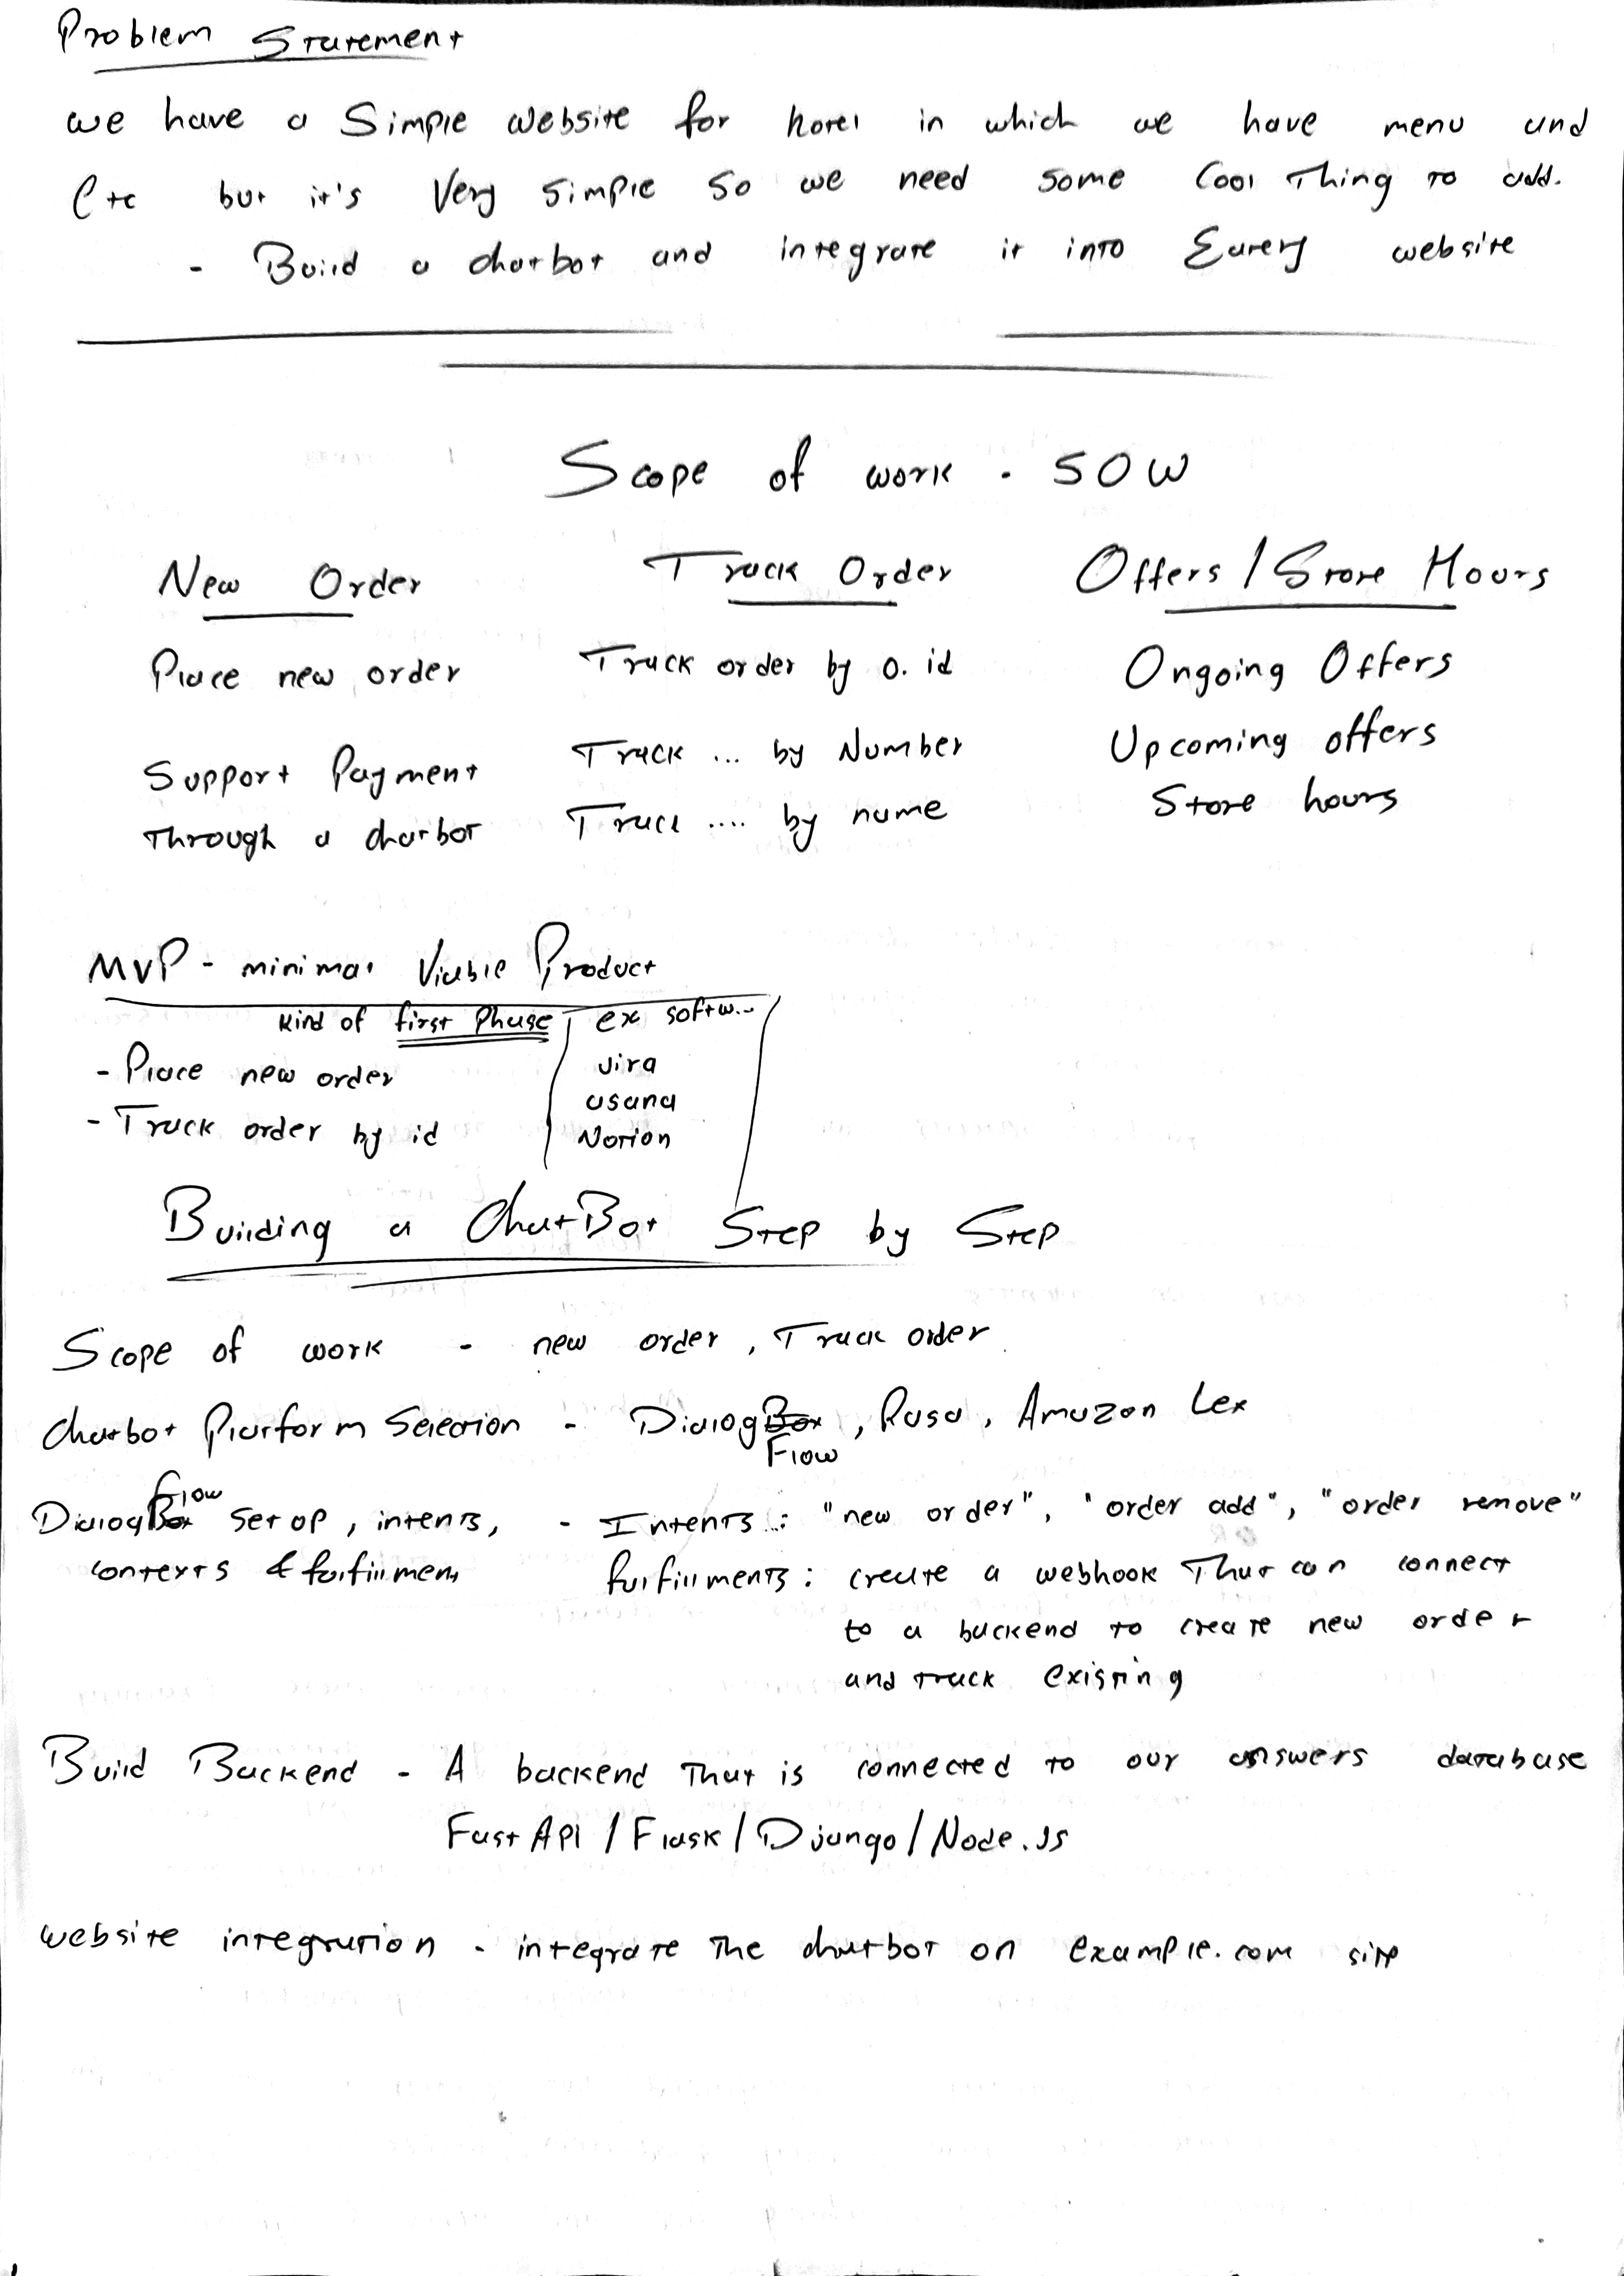 Problem Statement
we have a Simple website for hotel in which we have menu and
etc but it's Very simple so we need some Cool Thing to add.
- Build a chatbot and integrate it into Eatery website
Scope of work - SOW
New Order
Place new order
Support Payment
Through a chatbot
Track Order
Track order by o. id
Track ... by Number
Track .... by name
Offers / Store Hours
Ongoing Offers
Upcoming offers
Store hours
MVP - minimal Viable Product
Kind of first Phase
- Place new order
- Track order by id
ex softw...
Jira
asana
Notion
Building a ChatBot Step by Step
Scope of work - new order, Track order
Chatbot Platform Selection - Dialog Box Flow, Rasa, Amazon Lex
Dialog Box Flow Set up, intents, - Intents : "new order", "order add", "order remove"
contexts & fulfillment
fulfillments : create a webhook That can connect
to a backend to create new order
and track existing
Build Backend - A backend That is connected to our answers database
Fast API / Flask / Django / Node.Js
website integration - integrate The chatbot on example.com site